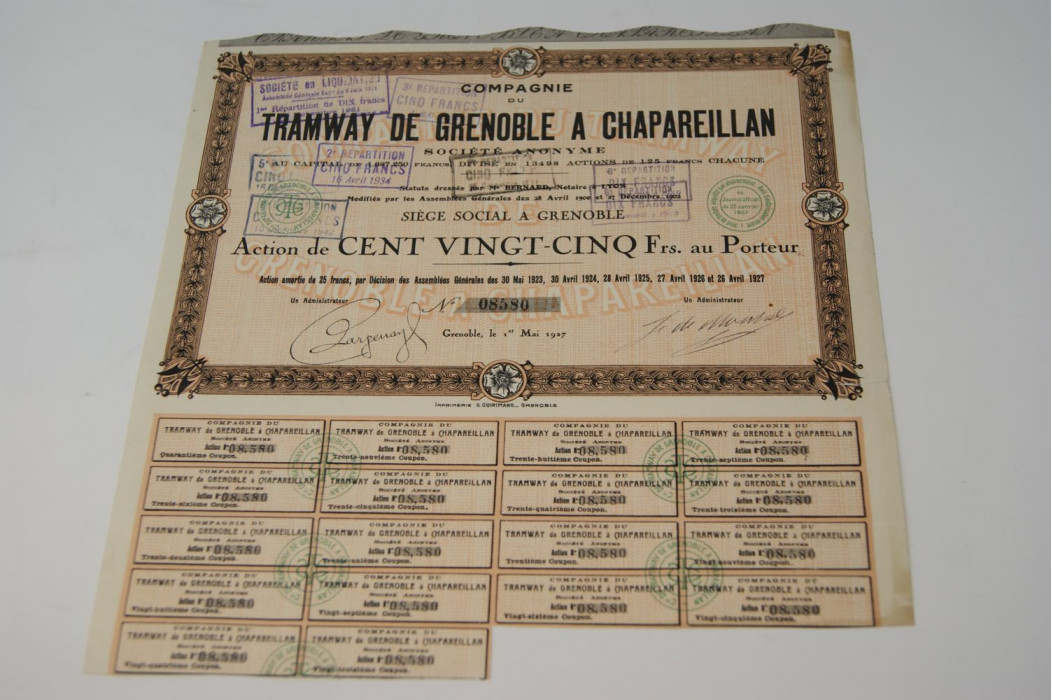 SOCIÉTÉ EN LIQUIDATION
1re Répartition de DIX francs
3e RÉPARTITION
CINQ FRANCS
COMPAGNIE
DU
TRAMWAY DE GRENOBLE A CHAPAREILLAN
SOCIÉTÉ ANONYME
AU CAPITAL DE 1.687.250 FRANCS, DIVISÉ EN 13498 ACTIONS DE 125 FRANCS CHACUNE
2e RÉPARTITION
CINQ FRANCS
16 Avril 1934
6e RÉPARTITION
DIX FRANCS
RÉPARTITION
DIX FRANCS
Statuts dressés par Me BERNARD, Notaire à LYON
Modifiés par les Assemblées Générales des 28 Avril 1900 et 27 Décembre 1902
SIÈGE SOCIAL A GRENOBLE
Action de CENT VINGT-CINQ Frs. au Porteur
Action amortie de 25 francs, par Décision des Assemblées Générales des 30 Mai 1923, 30 Avril 1924, 28 Avril 1925, 27 Avril 1926 et 26 Avril 1927
Un Administrateur
No 08580
Un Administrateur
Grenoble, le 1er Mai 1927
IMPRIMERIE G. GUIRIMAND, GRENOBLE
COMPAGNIE DU COMPAGNIE DU COMPAGNIE DU COMPAGNIE DU
TRAMWAY de GRENOBLE à CHAPAREILLAN TRAMWAY de GRENOBLE à CHAPAREILLAN TRAMWAY de GRENOBLE à CHAPAREILLAN TRAMWAY de GRENOBLE à CHAPAREILLAN
Société Anonyme Société Anonyme Société Anonyme Société Anonyme
Action No 08,580 Action No 08,580 Action No 08,580 Action No 08,580
Quarantième Coupon. Trente-neuvième Coupon. Trente-huitième Coupon. Trente-septième Coupon.
COMPAGNIE DU COMPAGNIE DU COMPAGNIE DU COMPAGNIE DU
TRAMWAY de GRENOBLE à CHAPAREILLAN TRAMWAY de GRENOBLE à CHAPAREILLAN TRAMWAY de GRENOBLE à CHAPAREILLAN TRAMWAY de GRENOBLE à CHAPAREILLAN
Société Anonyme Société Anonyme Société Anonyme Société Anonyme
Action No 08,580 Action No 08,580 Action No 08,580 Action No 08,580
Trente-sixième Coupon. Trente-cinquième Coupon. Trente-quatrième Coupon. Trente-troisième Coupon.
COMPAGNIE DU COMPAGNIE DU COMPAGNIE DU COMPAGNIE DU
TRAMWAY de GRENOBLE à CHAPAREILLAN TRAMWAY de GRENOBLE à CHAPAREILLAN TRAMWAY de GRENOBLE à CHAPAREILLAN TRAMWAY de GRENOBLE à CHAPAREILLAN
Société Anonyme Société Anonyme Société Anonyme Société Anonyme
Action No 08,580 Action No 08,580 Action No 08,580 Action No 08,580
Trente-deuxième Coupon. Trente-unième Coupon. Trentième Coupon. Vingt-neuvième Coupon.
COMPAGNIE DU COMPAGNIE DU COMPAGNIE DU COMPAGNIE DU
TRAMWAY de GRENOBLE à CHAPAREILLAN TRAMWAY de GRENOBLE à CHAPAREILLAN TRAMWAY de GRENOBLE à CHAPAREILLAN TRAMWAY de GRENOBLE à CHAPAREILLAN
Société Anonyme Société Anonyme Société Anonyme Société Anonyme
Action No 08,580 Action No 08,580 Action No 08,580 Action No 08,580
Vingt-huitième Coupon. Vingt-septième Coupon. Vingt-sixième Coupon. Vingt-cinquième Coupon.
COMPAGNIE DU COMPAGNIE DU
TRAMWAY de GRENOBLE à CHAPAREILLAN TRAMWAY de GRENOBLE à CHAPAREILLAN
Société Anonyme Société Anonyme
Action No 08,580 Action No 08,580
Vingt-quatrième Coupon. Vingt-troisième Coupon.